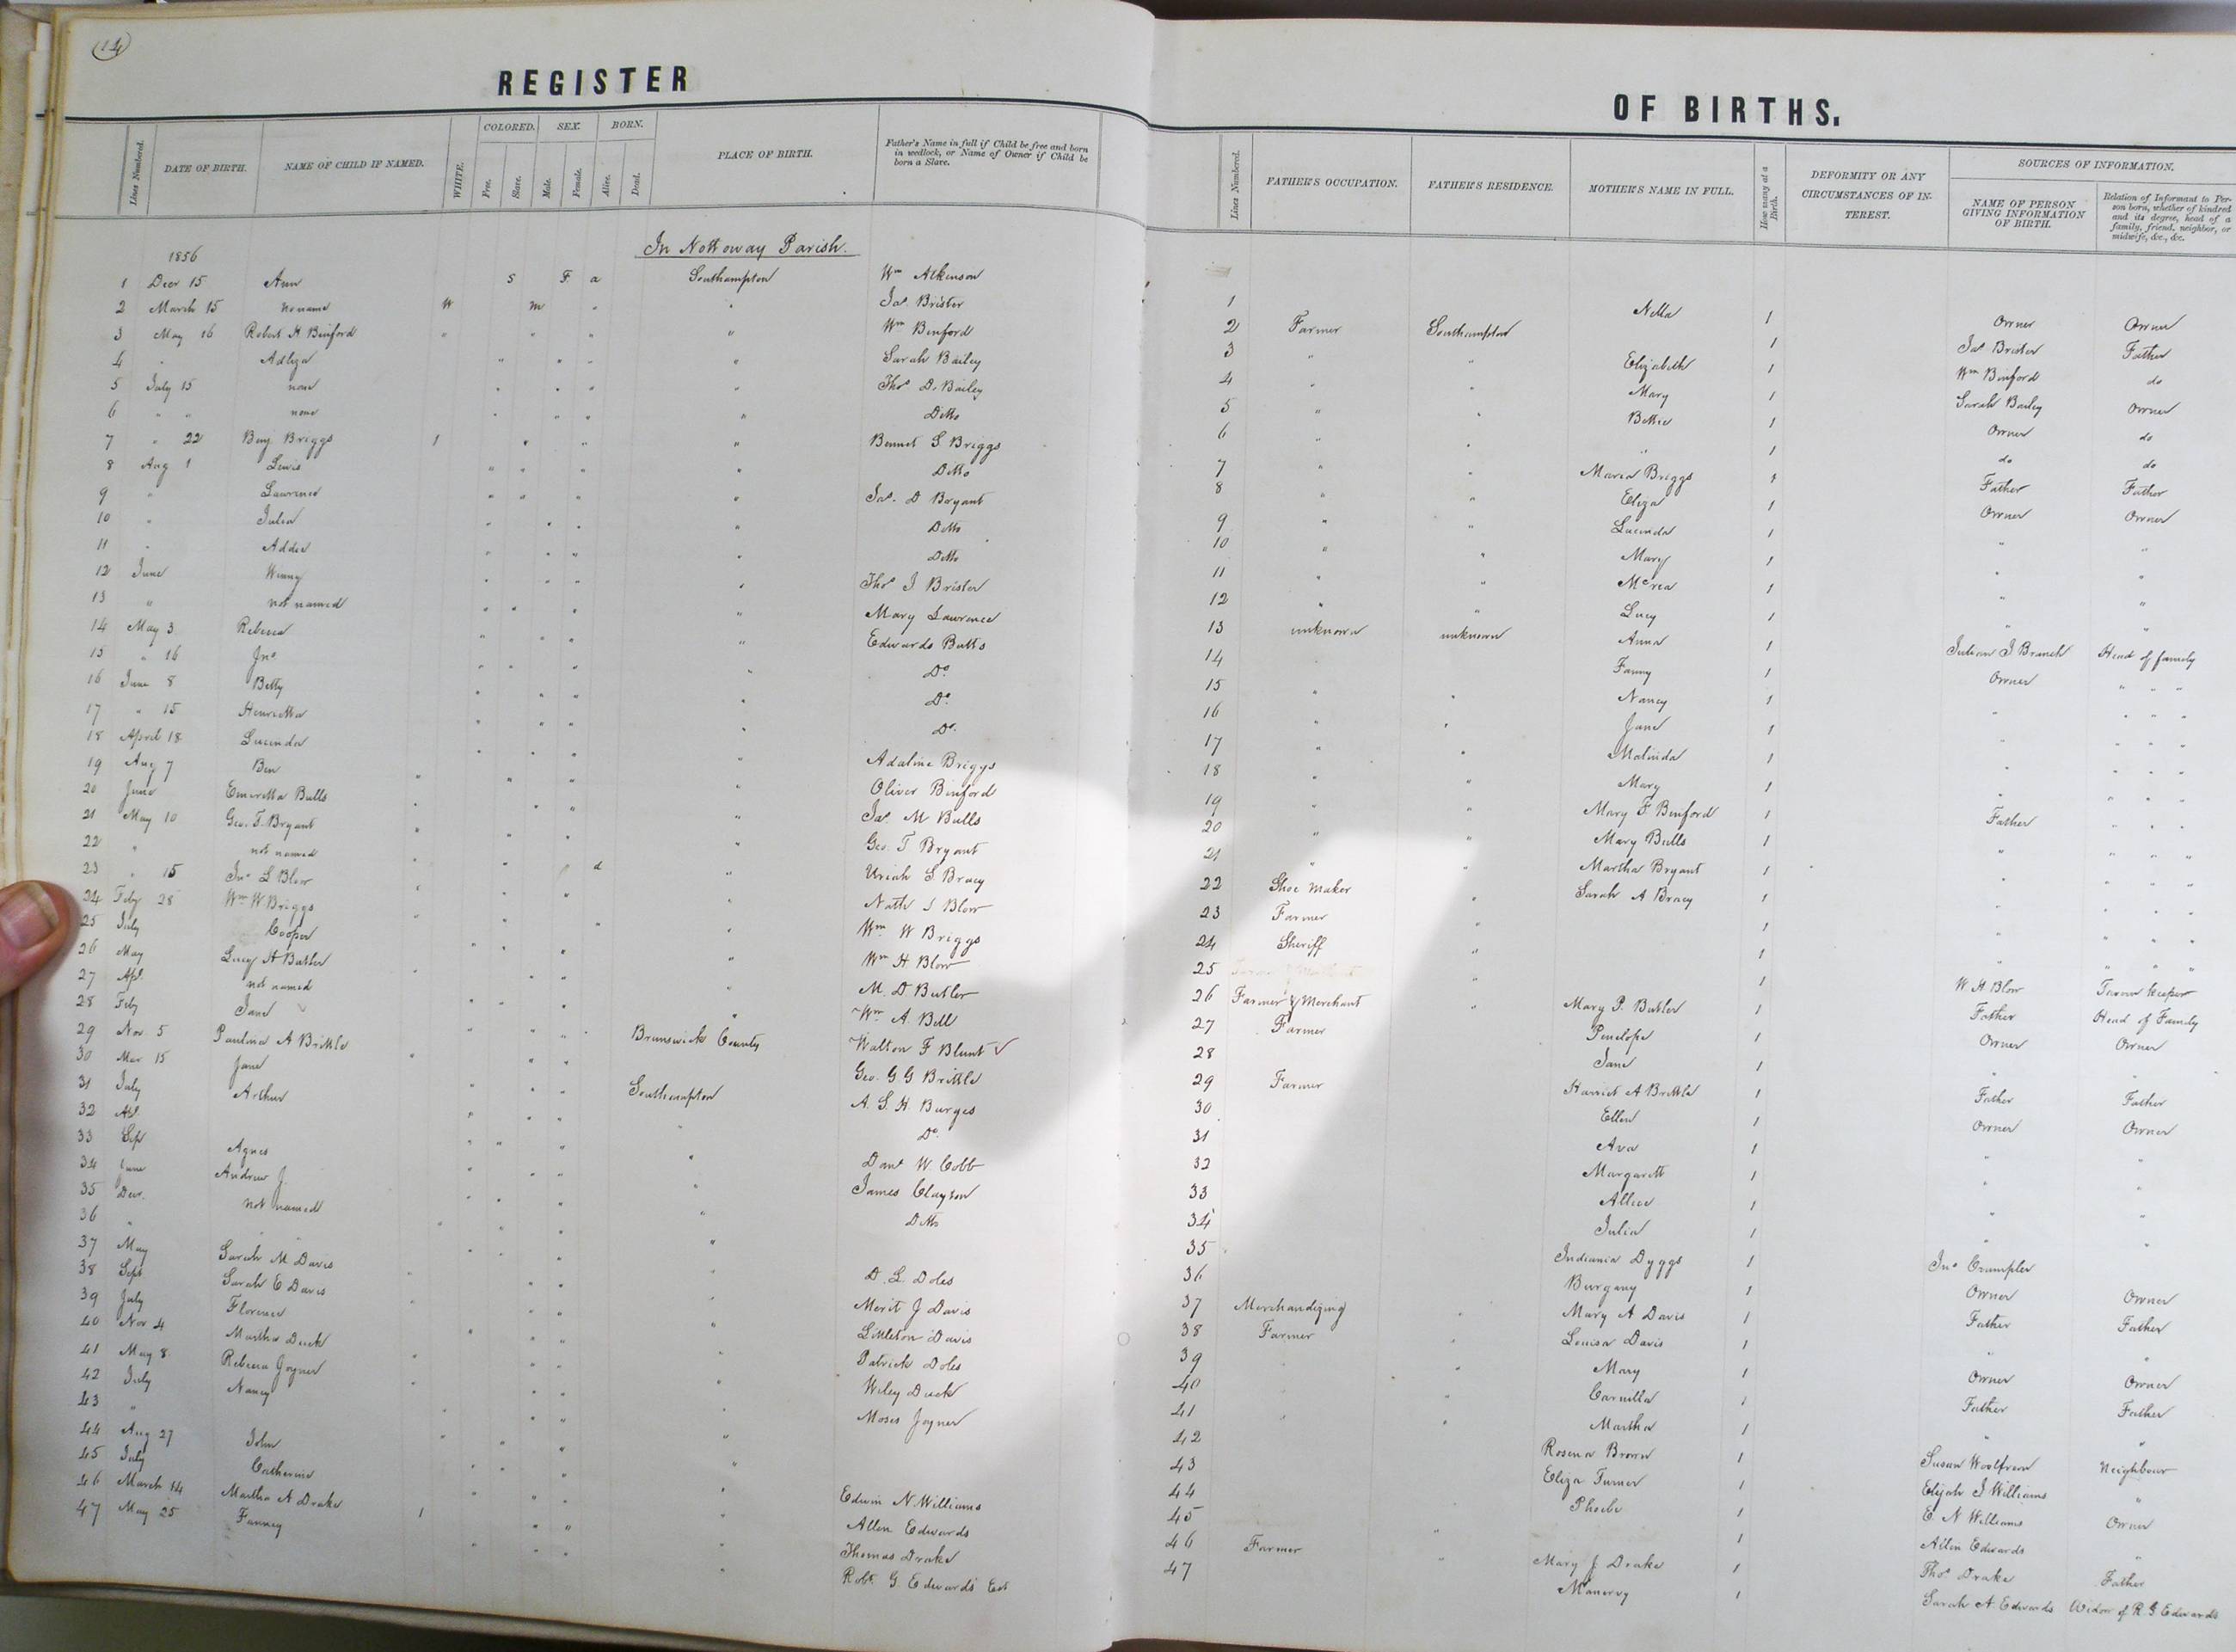 14
REGISTER
OF BIRTHS.
Lines Numbered.
DATE OF BIRTH.
NAME OF CHILD IF NAMED.
WHITE.
COLORED.
Free.
Slave.
SEX.
Male.
Female.
BORN.
Alive.
Dead.
PLACE OF BIRTH.
Father's Name in full if Child be free and born
in wedlock, or Name of Owner if Child be
born a Slave.
Lines Numbered.
FATHER'S OCCUPATION.
FATHER'S RESIDENCE.
MOTHER'S NAME IN FULL.
How many at a Birth.
DEFORMITY OR ANY
CIRCUMSTANCES OF IN-
TEREST.
SOURCES OF INFORMATION.
NAME OF PERSON
GIVING INFORMATION
OF BIRTH.
Relation of Informant to Per-
son born, whether of kindred
and its degree, head of a
family, friend, neighbor, or
midwife, &c., &c.
1856
In Nottoway Parish.
1 Decr 15 Ann S F a Southampton Wm Atkinson
2 March 15 no name W m " " Jas Brister
3 May 16 Robert H Binford " " " " Wm Binford
4 " " " " " " Sarah Bailey
5 July 15 none " " " " Thos D. Bailey
6 " " none " " " " Ditto
7 " 22 Benj Briggs 1 " " " Bennet S Briggs
8 Aug 1 Lewis " " " " Ditto
9 " Lawrence " " " " Jas. D Bryant
10 " Julia " " " " Ditto
11 " Addie " " " " Ditto
12 June Winny " " " " Thos J Brister
13 " not named " " " " Mary Lawrence
14 May 3 Rebecca " " " " Edwards Butts
15 " 16 Jno " " " " Do
16 June 8 Betty " " " " Do
17 " 15 Henrietta " " " " Do
18 April 18 Lucinda " " " " Adaline Briggs
19 Aug 7 Ben " " " " Oliver Binford
20 June Bulls " " " " Jas. M Bulls
21 May 10 Geo. T. Bryant " " " " Geo. T Bryant
22 " not named " " d " Uriah S Bracy
23 " 15 Jno L Blow " " " " Nathl S Blow
24 Feby 28 Wm W. Briggs " " " " Wm W Briggs
25 July Cooper " " " " Wm H. Blow
26 May Lucy A Butler " " " " M. D Butler
27 Apl. not named " " " " Wm A. Bell
28 Feby Jane " " " Brunswick County Walton F Blunt
29 Nov 5 Paulina A Brittle " " " Geo. G G Brittle
30 Mar 15 Jane " " " Southampton A. S. H. Burges
31 July Arthur " " " " Do.
32 Apl. " " " " Danl W. Cobb
33 Sep Agnes " " " " James Clayton
34 June Andrew J. " " " " Ditto
35 Decr. not named " " " "
36 " " " " " " D. L. Doles
37 May Sarah M. Davis " " " " Merit J Davis
38 Sept Sarah E Davis " " " " Littleton Davis
39 July Florence " " " " Patrick Doles
40 Nov 4 Martha Duck " " " " Wiley Duck
41 May 8 Rebecca Joyner " " " " Moses Joyner
42 July Nancy " " " "
43 " " " " "
44 Aug 27 John " " " " Edwin N. Williams
45 July Catherine " " " " Allen Edwards
46 March 14 Martha A Drake 1 " " " Thomas Drake
47 May 25 Fanney " " " " Robt. G. Edwards Est
1 Nella 1 Owner Owner
2 Farmer Southampton 1 Jas Brister Father
3 " " Elizabeth 1 Wm Binford do
4 " " Mary 1 Sarah Bailey Owner
5 " " Bettie 1 Owner do
6 " " " 1 do do
7 " " Maria Briggs 1 Father Father
8 " " Eliza 1 Owner Owner
9 " " Lucinda 1 " "
10 " " Mary 1 " "
11 " " 1 " "
12 " " Lucy 1 " "
13 unknown unknown Anna 1 Julian J Branch Head of family
14 Fanny 1 Owner " " "
15 " " Nancy 1 " " " "
16 " " Jane 1 " " " "
17 " " Malinda 1 " " " "
18 " " Mary 1 " " " "
19 " " Mary F Binford 1 Father " " "
20 " " Mary Bulls 1 " " " "
21 " " Martha Bryant 1 " " " "
22 Shoe Maker " Sarah A Bracy 1 " " " "
23 Farmer " 1 " " " "
24 Sheriff " 1 " " " "
25 1 W H Blow Tavern Keeper
26 Farmer & Merchant " Mary P. Butler 1 Father Head of Family
27 Farmer Penelope 1 Owner Owner
28 Jane 1 " "
29 Farmer Harriet A Brittle 1 Father Father
30 Ellen 1 Owner Owner
31 Ava 1 " "
32 Margarett 1 " "
33 Allice 1 " "
34 Julia 1 " "
35 Indiania Dyggs 1 Jno Crumpler
36 Burgany 1 Owner Owner
37 Merchandizing " Mary A Davis 1 Father Father
38 Farmer Louisa Davis 1 " "
39 " Mary 1 Owner Owner
40 " Carnilla 1 Father Father
41 " " Martha 1 " "
42 Rosena Brown 1 Susan Woolfrew Neighbour
43 Eliza Turner 1 Elijah J Williams "
44 Phoebe 1 E. N Williams Owner
45 " 1 Allen Edwards "
46 Farmer " Mary J. Drake 1 Thos Drake Father
47 Manervy 1 Sarah A Edwards Widow of R. G Edwards